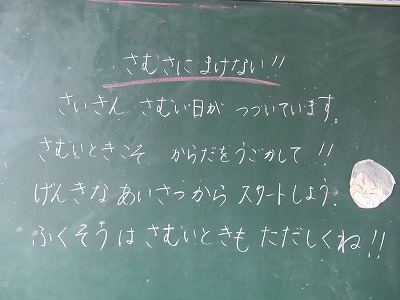 さむさに まけない!!
さいきん さむい日が つづいています。
さむいときこそ からだをうごかして !!
げんきな あいさつから スタートしよう。
ふくそうは さむいときも ただしくね!!